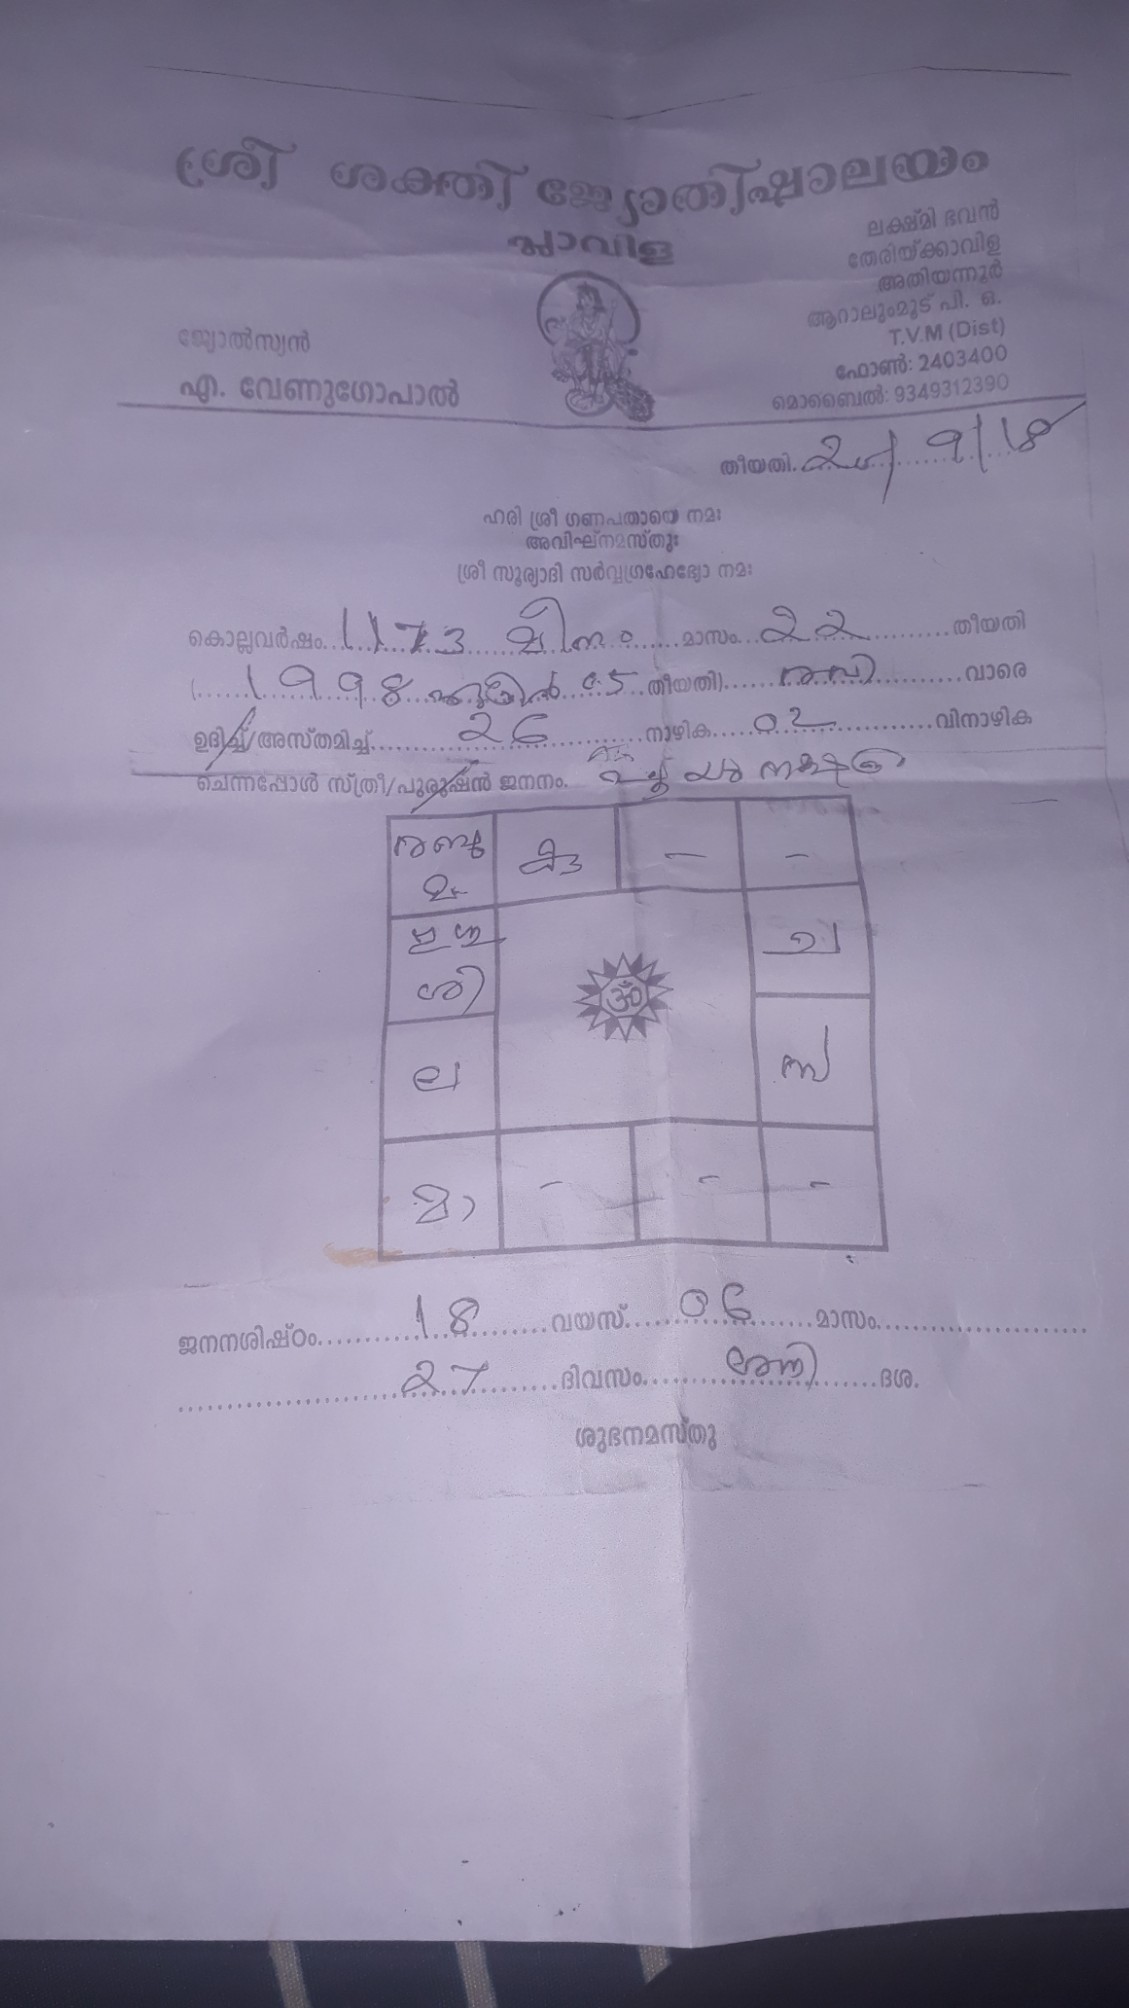 ശ്രീ ശക്തി ജ്യോതിഷാലയം
പ്ലാവിള
ലക്ഷ്മി ഭവൻ
തേരിയ്ക്കാവിള
അതിയന്നൂർ
ആറാലുംമൂട് പി. ഒ.
T.V.M (Dist)
ഫോൺ: 2403400
മൊബൈൽ: 9349312390
ജ്യോൽസ്യൻ
എ. വേണുഗോപാൽ
തീയതി. 9/18
ഹരി ശ്രീ ഗണപതായെ നമഃ
അവിഘ്നമസ്തുഃ
ശ്രീ സൂര്യാദി സർവ്വഗ്രഹേഭ്യോ നമഃ
കൊല്ലവർഷം 1173 മീനം മാസം 22 തീയതി
(1998 ഏപ്രിൽ 05 തീയതി) രവി വാരെ
ഉദിച്ച്/അസ്തമിച്ച് 26 നാഴിക 02 വിനാഴിക
ചെന്നപ്പോൾ സ്ത്രീ/പുരുഷൻ ജനനം. പൂയം നക്ഷത്രം
മ
കു
-
-
ശി
ച
ല
സ
മാ
-
-
-
ജനനശിഷ്ഠം 18 വയസ് 06 മാസം
27 ദിവസം ശനി ദശ.
ശുഭനമസ്തു